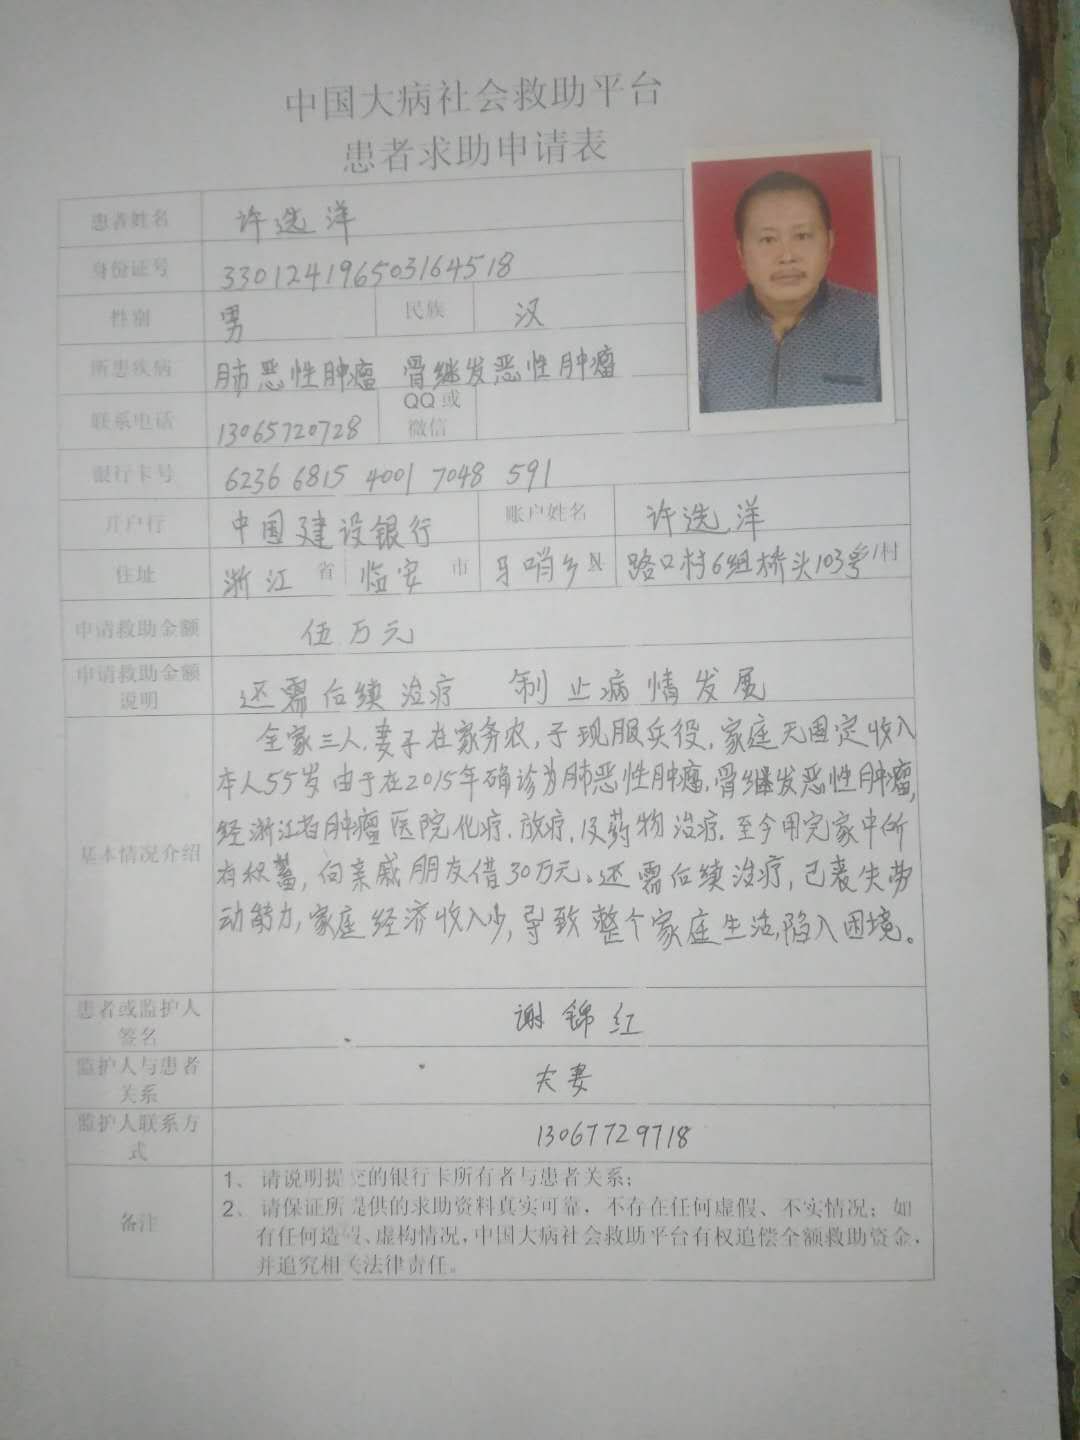 中国大病社会救助平台
患者求助申请表
患者姓名 许选洋
身份证号 330124196503164518
性别 男 民族 汉
所患疾病 肺恶性肿瘤 骨继发恶性肿瘤
联系电话 13065720728 QQ或微信
银行卡号 6236 6815 4001 7048 591
开户行 中国建设银行 账户姓名 许选洋
住址 浙江 省 临安 市 牙哨乡 路口村6组桥头103号 村
申请救助金额 伍万元
申请救助金额说明 还需后续治疗 制止病情发展
基本情况介绍
全家三人,妻子在家务农,子现服兵役,家庭无固定收入
本人55岁 由于在2015年确诊为肺恶性肿瘤,骨继发恶性肿瘤,
经浙江省肿瘤医院化疗.放疗,及药物治疗.至今用完家中所
有积蓄,向亲戚朋友借30万元。还需后续治疗,已丧失劳
动能力,家庭经济收入少,导致整个家庭生活陷入困境。
患者或监护人签名 谢锦红
监护人与患者关系 夫妻
监护人联系方式 13067729718
备注
1、请说明提交的银行卡所有者与患者关系;
2、请保证所提供的求助资料真实可靠,不存在任何虚假、不实情况;如
有任何造假、虚构情况,中国大病社会救助平台有权追偿全额救助资金,
并追究相关法律责任。